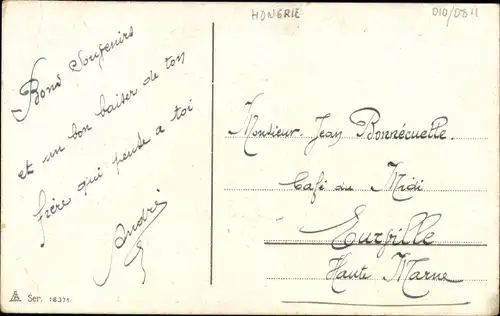 HONGRIE
010/0811
Bons Souvenirs
et un bon baiser de ton
frère qui pense a toi
André
Monsieur Jean Bonnécuelle.
Café du Midi
Eurville
Haute Marne
Ser. 1637I.